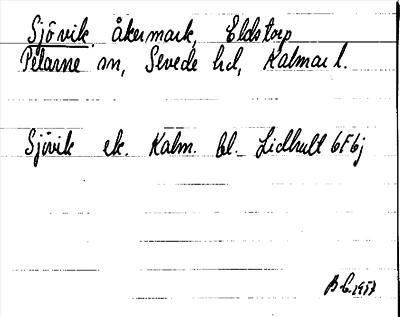 Sjövik, åkermark, Eldstorp
Pelarne sn, Sevede hd, Kalmar l.
Sjövik ek. Kalm. bl. Lidhult 6F6j
B C. 1957